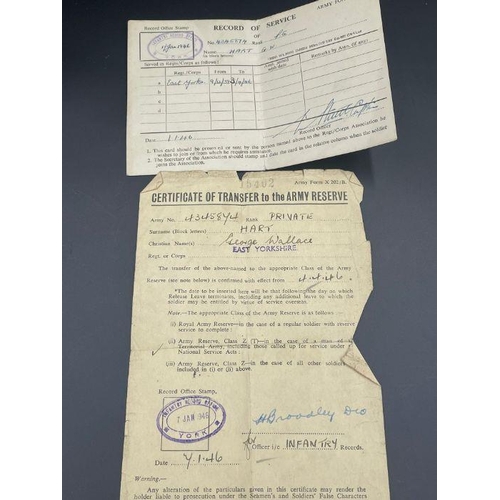 Record Office Stamp
ARMY FO
RECORD OF SERVICE
of
No. Rank
Name HART G.W.
Served in Regts/Corps as follows:
Regt./Corps From To
Remarks by Assn. (if any)
a East Yorks
b
c
d
Date 1.1.46
Record Officer
1. This card should be presented or sent by the person named above to the Regt/Corps Association he
wishes to join or from which he requires assistance.
2. The Secretary of the Association should stamp and date the card in the relative column when the soldier
joins the Association.
15402
Army Form X 202/B.
CERTIFICATE OF TRANSFER to the ARMY RESERVE
Army No. 4345874 Rank PRIVATE
Surname (Block letters) HART
Christian Name(s) George Wallace
EAST YORKSHIRE
Regt. or Corps
The transfer of the above-named to the appropriate Class of the Army
Reserve (see note below) is confirmed with effect from 4.4.46.
*The date to be inserted here will be that following the day on which
Release Leave terminates, including any additional leave to which the
soldier may be entitled by virtue of service overseas.
Note.—The appropriate Class of the Army Reserve is as follows
(i) Royal Army Reserve—in the case of a regular soldier with reserve
service to complete:
(ii) Army Reserve, Class Z (T)—in the case of a man of the
Territorial Army, including those called up for service under the
National Service Acts:
(iii) Army Reserve, Class Z—in the case of all other soldiers
included in (i) or (ii) above.
Record Office Stamp.
INFANTRY RECORD OFFICE
7 JAN 1946
YORK
H Broadley
for
Officer i/c INFANTRY Records.
Date 7/1.46
Warning.—
Any alteration of the particulars given in this certificate may render the
holder liable to prosecution under the Seamen's and Soldiers' False Characters